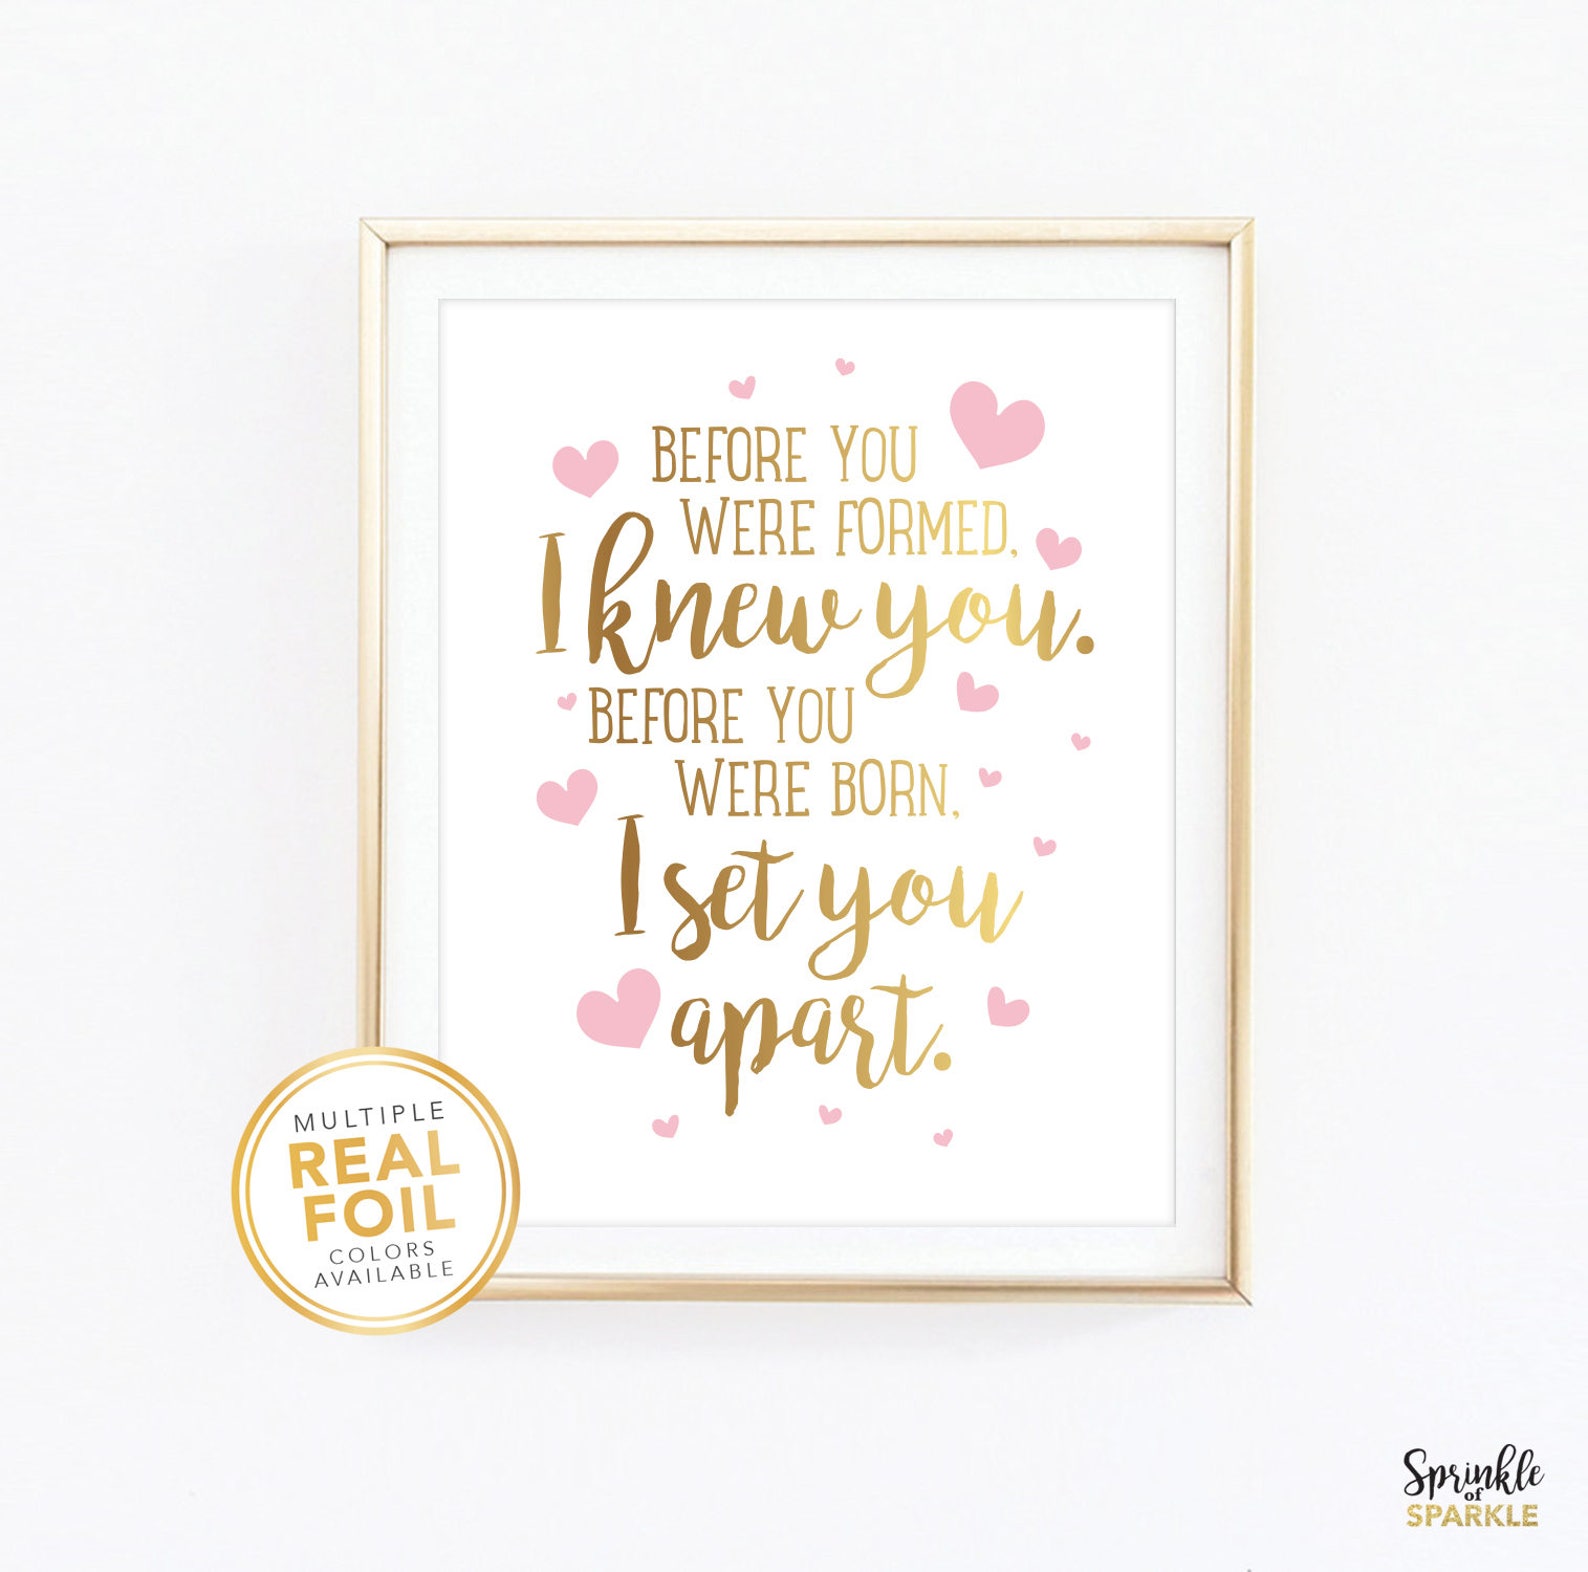 BEFORE YOU
WERE FORMED,
I knew you.
BEFORE YOU
WERE BORN,
I set you
apart.
MULTIPLE
REAL
FOIL
COLORS
AVAILABLE
Sprinkle
of
SPARKLE